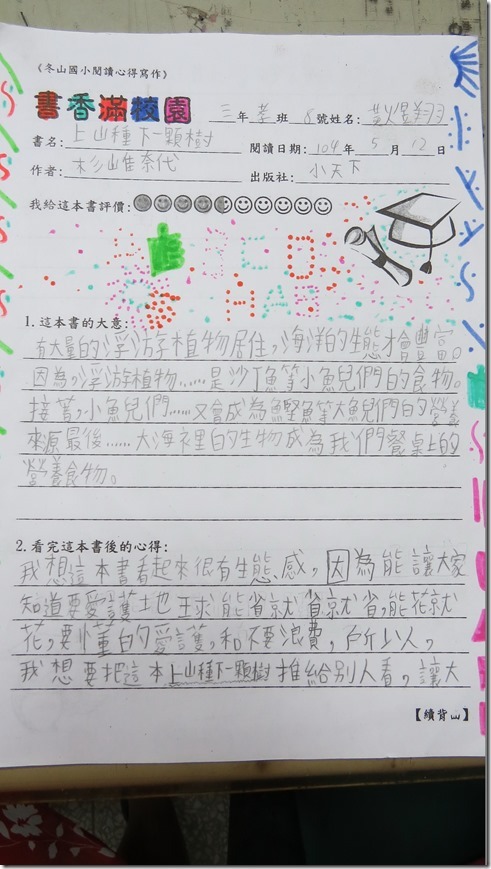 《冬山國小閱讀心得寫作》
書香滿校園 三年孝班 8號姓名: 黃煜翔
書名: 上山種下一顆樹 閱讀日期: 104年 5月 12日
作者: 杉山佳奈代 出版社: 小天下
我給這本書評價:
GOOD
HAR
1. 這本書的大意:
有大量的浮游植物居住,海洋的生態才會豐富。
因為,浮游植物……是沙丁魚等小魚兒們的食物。
接著,小魚兒們……又會成為鰹魚等大魚兒們的營養
來源最後……大海裡的生物成為我們餐桌上的
營養食物。
2. 看完這本書後的心得:
我想這本書看起來很有生態感,因為能讓大家
知道要愛護地球能省就省就省,能花就
花,要懂的愛護,和不要浪費,所以人,
我想要把這本上山種下一顆樹推給別人看,讓大
【續背面】